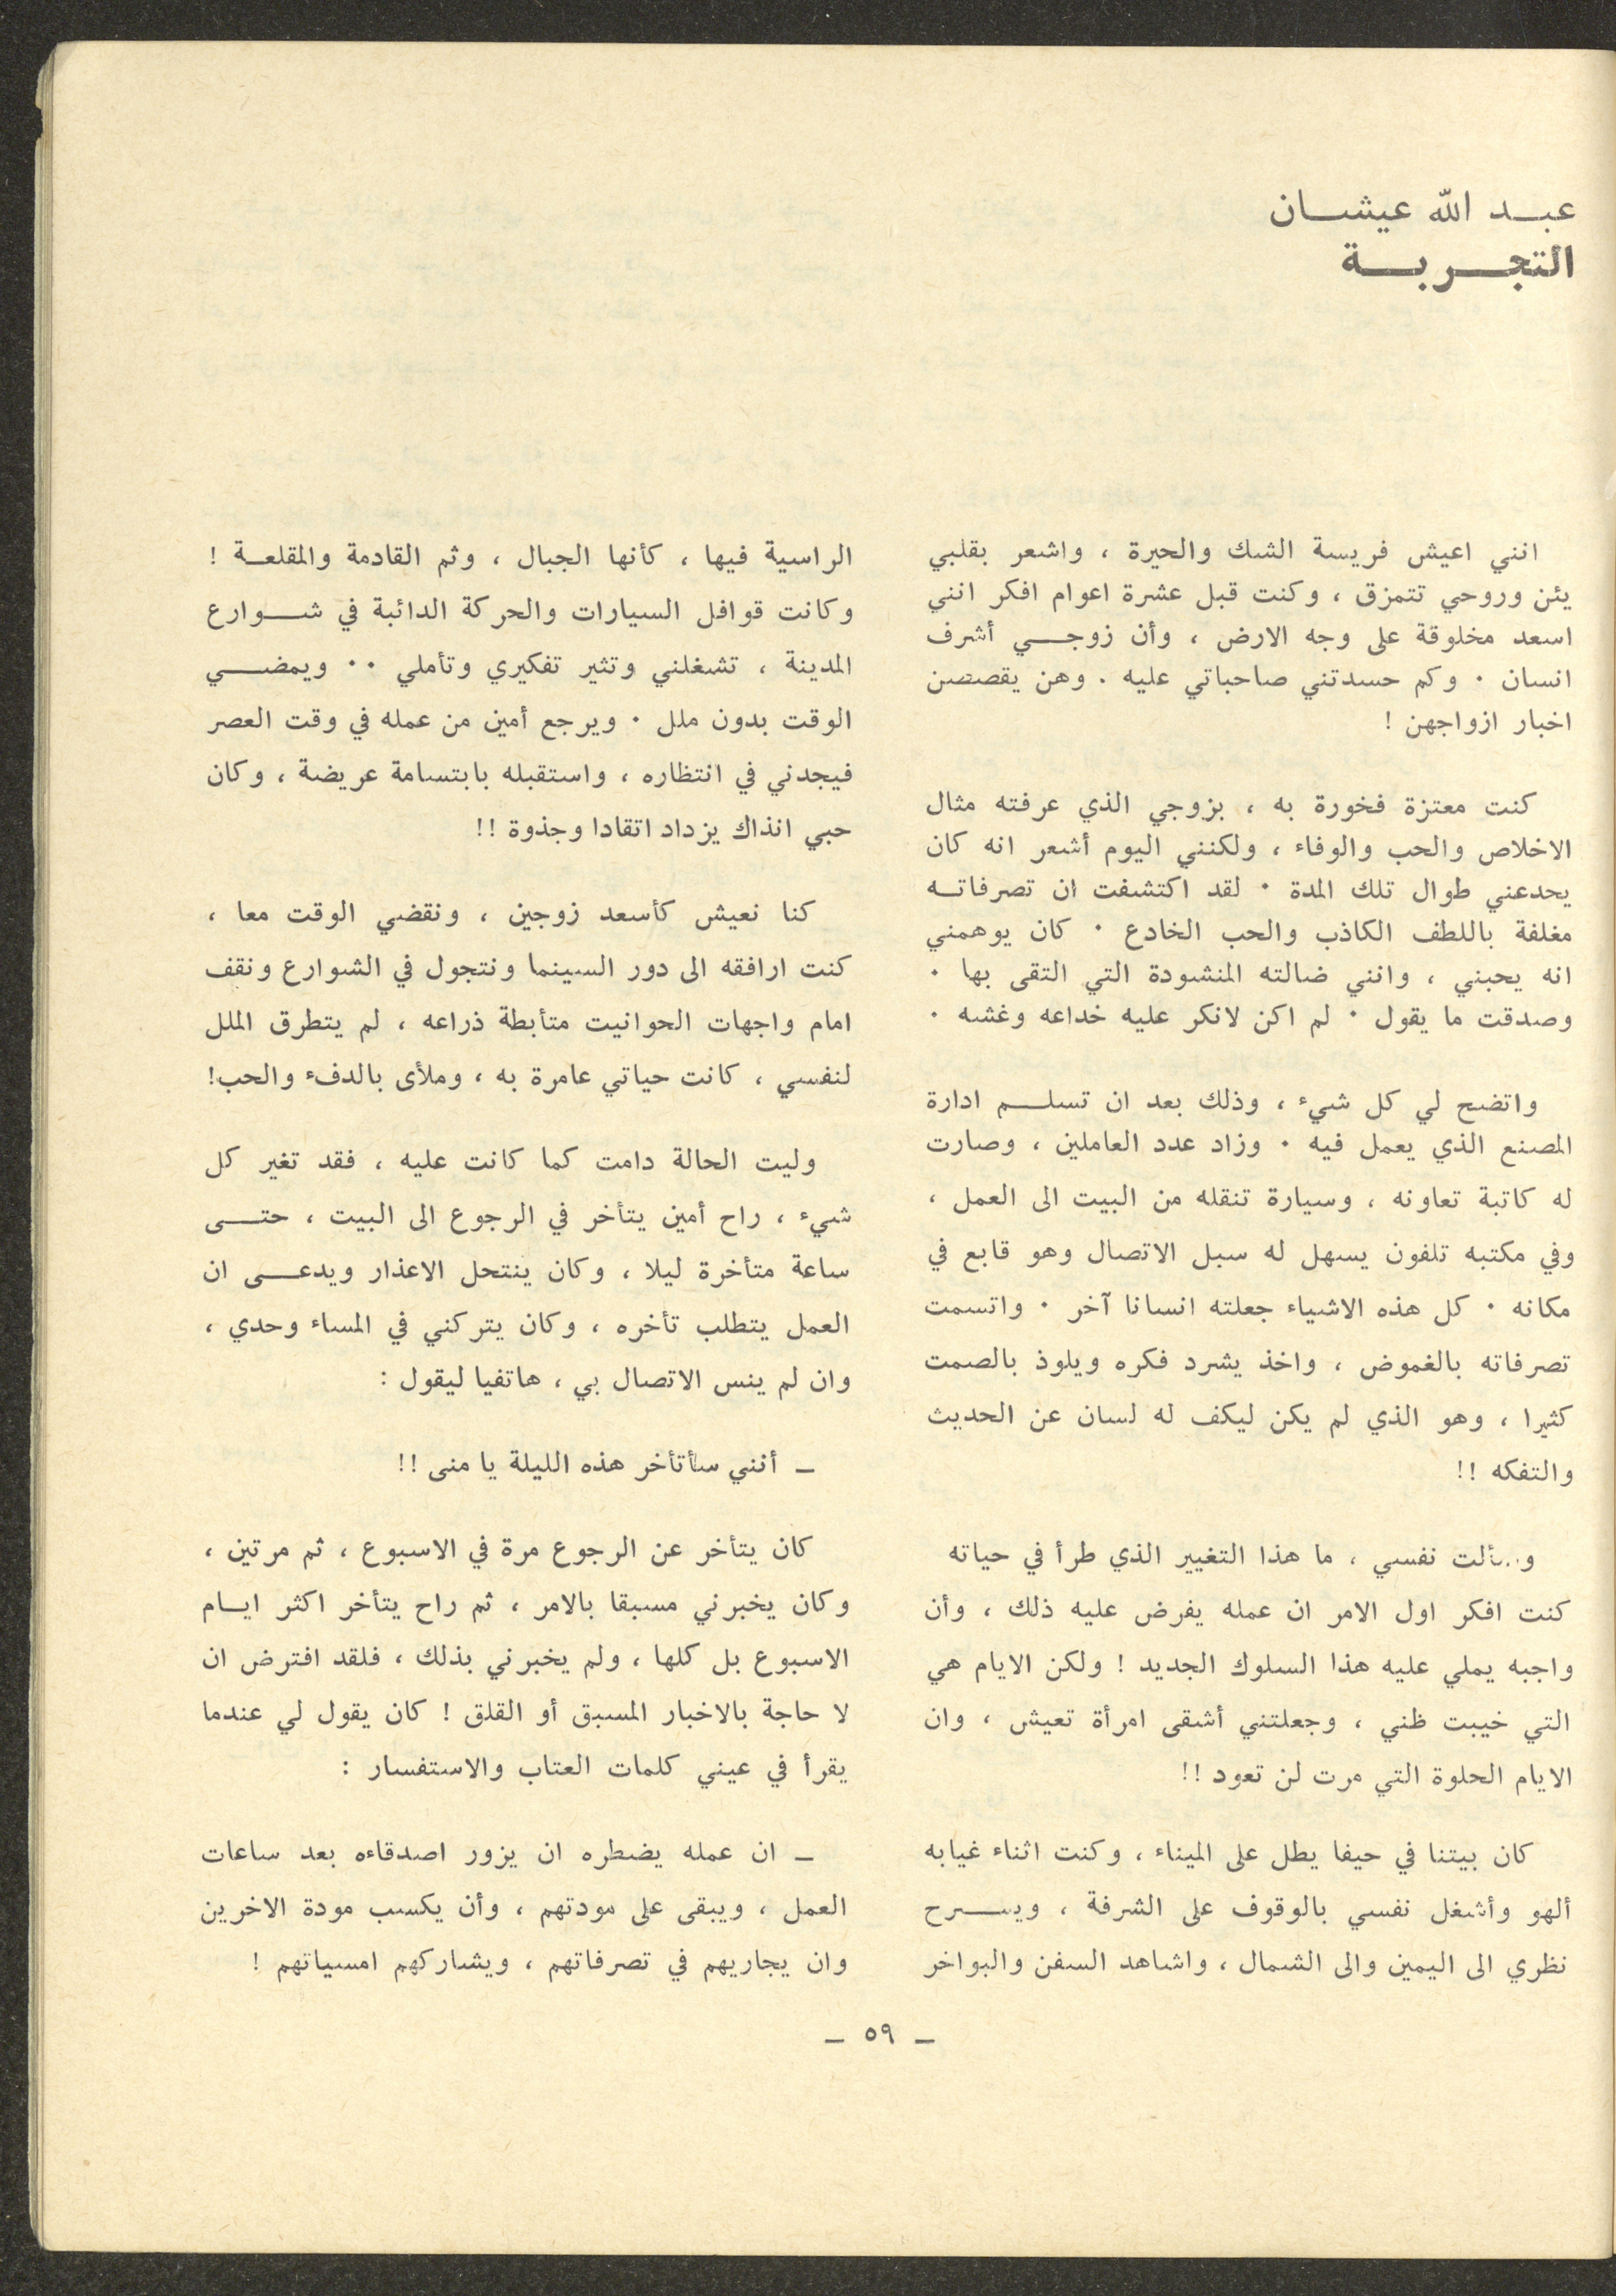 عبد الله عيشان
التجربة
انني اعيش فريسة الشك والحيرة ، واشعر بقلبي
يئن وروحي تتمزق ، وكنت قبل عشرة اعوام افكر انني
اسعد مخلوقة على وجه الارض ، وأن زوجي أشرف
انسان . وكم حسدتني صاحباتي عليه . وهن يقصصن
اخبار ازواجهن !
كنت معتزة فخورة به ، بزوجي الذي عرفته مثال
الاخلاص والحب والوفاء ، ولكنني اليوم أشعر انه كان
يحدعني طوال تلك المدة . لقد اكتشفت ان تصرفاته
مغلفة باللطف الكاذب والحب الخادع . كان يوهمني
انه يحبني ، وانني ضالته المنشودة التي التقى بها .
وصدقت ما يقول . لم اكن لانكر عليه خداعه وغشه .
واتضح لي كل شيء ، وذلك بعد ان تسلم ادارة
المصنع الذي يعمل فيه . وزاد عدد العاملين ، وصارت
له كاتبة تعاونه ، وسيارة تنقله من البيت الى العمل ،
وفي مكتبه تلفون يسهل له سبل الاتصال وهو قابع في
مكانه . كل هذه الاشياء جعلته انسانا آخر . واتسمت
تصرفاته بالغموض ، واخذ يشرد فكره ويلوذ بالصمت
كثيرا ، وهو الذي لم يكن ليكف له لسان عن الحديث
والتفكه !!
وسألت نفسي ، ما هذا التغيير الذي طرأ في حياته
كنت افكر اول الامر ان عمله يفرض عليه ذلك ، وأن
واجبه يملي عليه هذا السلوك الجديد ! ولكن الايام هي
التي خيبت ظني ، وجعلتني أشقى امرأة تعيش ، وان
الايام الحلوة التي مرت لن تعود !!
كان بيتنا في حيفا يطل على الميناء ، وكنت اثناء غيابه
ألهو وأشغل نفسي بالوقوف على الشرفة ، ويسرح
نظري الى اليمين والى الشمال ، واشاهد السفن والبواخر
الراسية فيها ، كأنها الجبال ، وثم القادمة والمقلعة !
وكانت قوافل السيارات والحركة الدائبة في شوارع
المدينة ، تشغلني وتثير تفكيري وتأملي .. ويمضي
الوقت بدون ملل . ويرجع أمين من عمله في وقت العصر
فيجدني في انتظاره ، واستقبله بابتسامة عريضة ، وكان
حبي انذاك يزداد اتقادا وجذوة !!
كنا نعيش كأسعد زوجين ، ونقضي الوقت معا ،
كنت ارافقه الى دور السينما ونتجول في الشوارع ونقف
امام واجهات الحوانيت متأبطة ذراعه ، لم يتطرق الملل
لنفسي ، كانت حياتي عامرة به ، وملأى بالدفء والحب!
وليت الحالة دامت كما كانت عليه ، فقد تغير كل
شيء ، راح أمين يتأخر في الرجوع الى البيت ، حتى
ساعة متأخرة ليلا ، وكان ينتحل الاعذار ويدعى ان
العمل يتطلب تأخره ، وكان يتركني في المساء وحدي ،
وان لم ينس الاتصال بي ، هاتفيا ليقول :
ـ أنني سأتأخر هذه الليلة يا منى !!
كان يتأخر عن الرجوع مرة في الاسبوع ، ثم مرتين ،
وكان يخبرني مسبقا بالامر ، ثم راح يتأخر اكثر ايام
الاسبوع بل كلها ، ولم يخبرني بذلك ، فلقد افترض ان
لا حاجة بالاخبار المسبق أو القلق ! كان يقول لي عندما
يقرأ في عيني كلمات العتاب والاستفسار :
ـ ان عمله يضطره ان يزور اصدقاءه بعد ساعات
العمل ، ويبقى على مودتهم ، وأن يكسب مودة الاخرين
وان يجاريهم في تصرفاتهم ، ويشاركهم امسياتهم !
ـ ٥٩ ـ